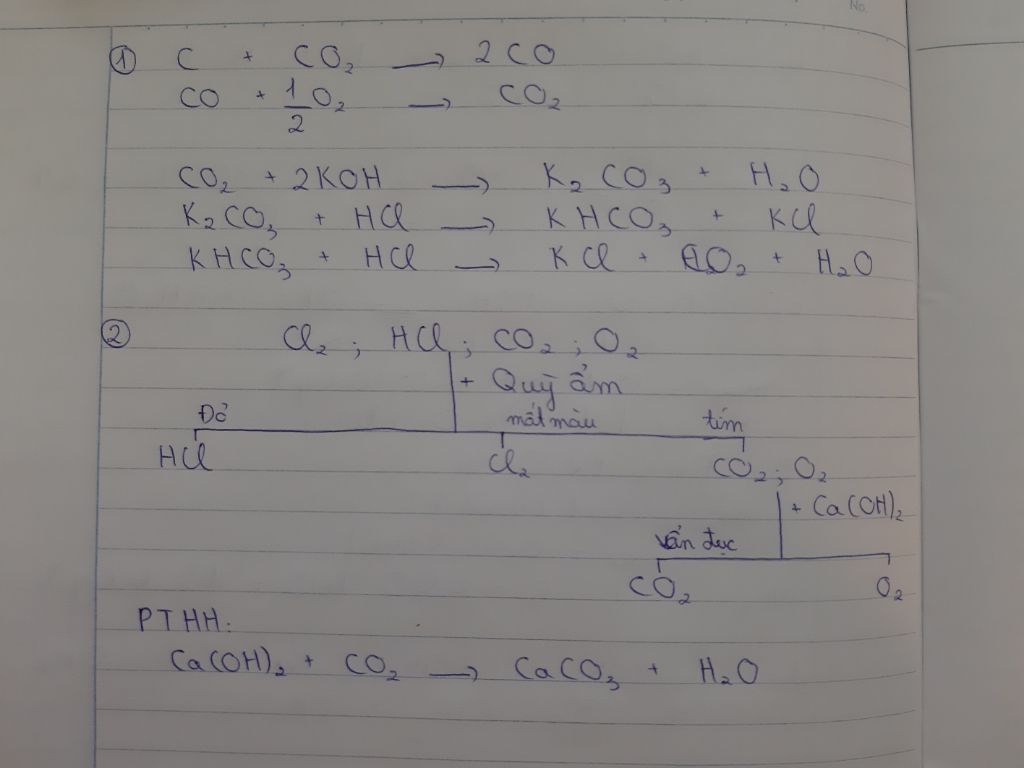 No.
① C + CO₂ → 2CO
CO + 1/2 O₂ → CO₂
CO₂ + 2KOH → K₂CO₃ + H₂O
K₂CO₃ + HCl → KHCO₃ + KCl
KHCO₃ + HCl → KCl + CO₂ + H₂O
② Cl₂ ; HCl ; CO₂ ; O₂
+ Quỳ ẩm
Đỏ mất màu tím
HCl Cl₂ CO₂ ; O₂
+ Ca(OH)₂
vẩn đục
CO₂ O₂
PTHH:
Ca(OH)₂ + CO₂ → CaCO₃ + H₂O